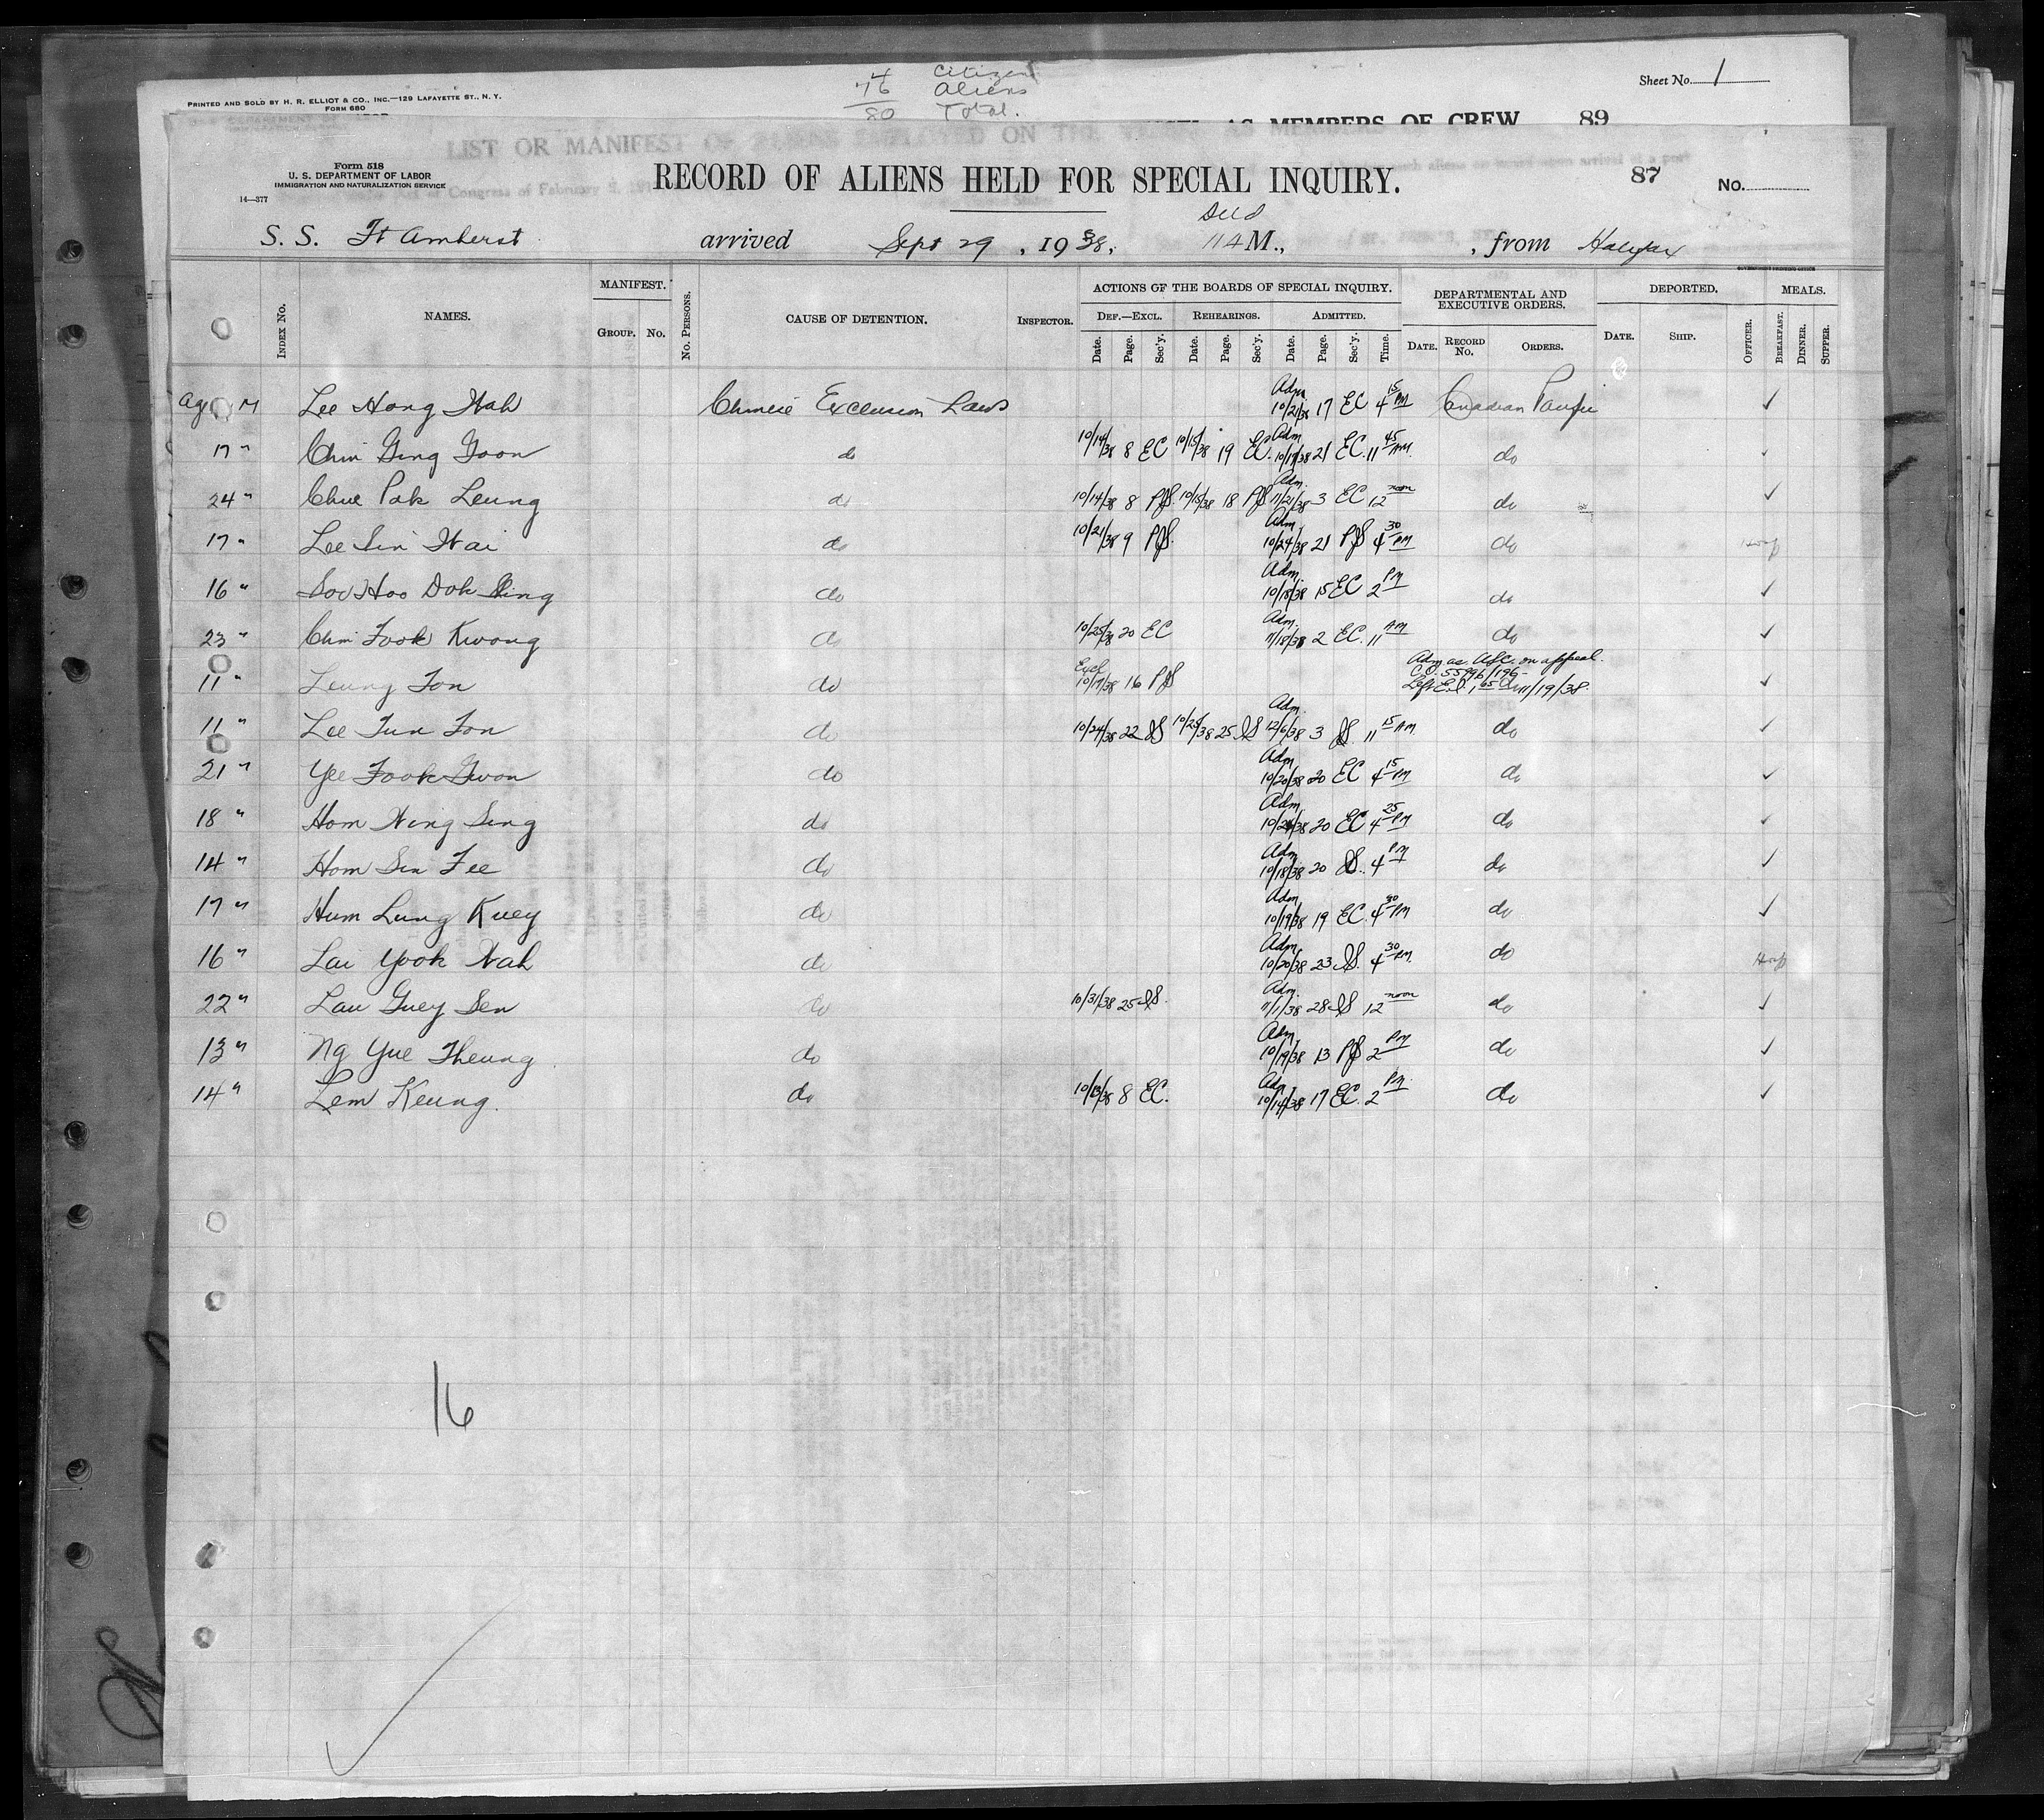 PRINTED AND SOLD BY H. R. ELLIOT & CO., INC.—129 LAFAYETTE ST., N. Y.
FORM 680
4 Citizen
76 Aliens
80 Total.
Sheet No. 1
AS MEMBERS OF CREW 89
LIST OR MANIFEST OF ALIENS EMPLOYED ON THE
Form 518
U. S. DEPARTMENT OF LABOR
IMMIGRATION AND NATURALIZATION SERVICE
14—377
RECORD OF ALIENS HELD FOR SPECIAL INQUIRY.
87 No.
S. S. Ft Amherst arrived Sept 29, 1938, 114 M., , from Halifax
INDEX NO. NAMES. MANIFEST. GROUP. NO. NO. PERSONS. CAUSE OF DETENTION. INSPECTOR. ACTIONS OF THE BOARDS OF SPECIAL INQUIRY. DEPARTMENTAL AND EXECUTIVE ORDERS. DEPORTED. MEALS.
DEF.—EXCL. REHEARINGS. ADMITTED.
Date. Page. Sec'y. Date. Page. Sec'y. Date. Page. Sec'y. Time. DATE. RECORD NO. ORDERS. DATE. SHIP. OFFICER. BREAKFAST. DINNER. SUPPER.
M Lee Hong Wah Chinese Exclusion Laws Adm 10/21/38 17 EC 4 15 PM Canadian Pacific
17 " Chin Ging Goon do 10/14/38 8 EC 10/15/38 19 EC Adm. 21 EC 11 45 AM do
24 " Chue Pak Leung do 10/14/38 8 PJS 10/15/38 18 PJS Adm. 11/21/38 3 EC 12 noon do
17 " Lee Sin Wai do 10/21/38 9 PJS Adm. 10/24/38 21 PJS 4 30 PM do Hosp
16 " Soo Hoo Dok Sing do Adm. 10/18/38 15 EC 2 PM do
23 " Chin Fook Kwong do 10/25/38 20 EC Adm. 11/18/38 2 EC 11 AM do
11 " Leung Ton do Excl 10/17/38 16 PJS Adm as on appeal.
C.O. 55996/196
Left E.I. 11/19/38.
11 " Lee Tun Fon do 10/24/38 22 JS 10/25/38 25 JS Adm. 12/6/38 3 JS 11 15 AM do
21 " Yee Fook Gwon do Adm 10/20/38 20 EC 4 15 PM do
18 " Hom Ning Sing do Adm. 20 EC 4 25 PM do
14 " Hom Sin Fee do Adm 10/18/38 20 JS. 4 PM do
17 " Hum Lung Kuey do Adm 10/19/38 19 EC 4 30 PM do
16 " Lai Yook Wah do Adm. 10/20/38 23 JS. 4 30 PM do Hosp
22 " Lau Guey Sen do 10/31/38 25 JS. Adm. 11/1/38 28 JS 12 noon do
13 " Ng Yue Theung do Adm. 10/19/38 13 PJS 2 PM do
14 " Lem Keung. do 10/13/38 8 EC. Adm 10/14/38 17 EC. 2 PM. do
16